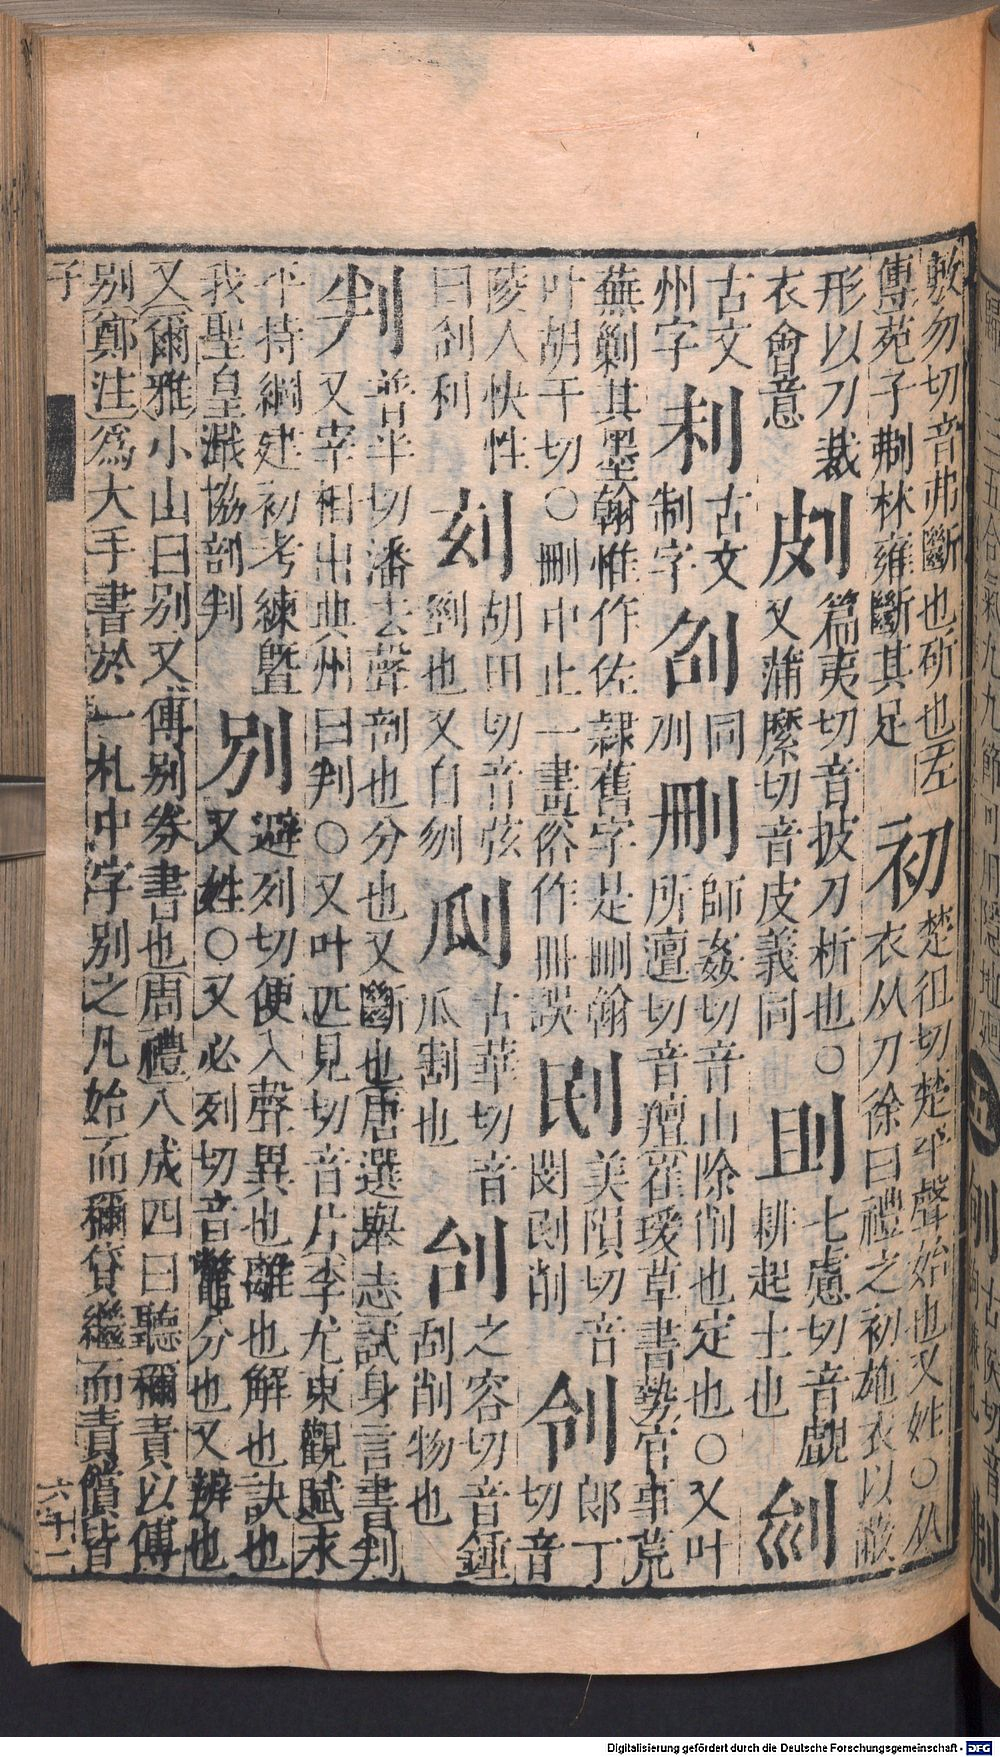 敷勿切音弗斷也斫也左
傳苑子刜林雍斷其足
初
楚徂切楚平聲始也又姓○从
衣从刀徐曰禮之初施衣以蔽
形以刀裁
衣會意
㓟
篇夷切音披刀析也○
又蒲縻切音皮義同
七慮切音覷
耕起土也
古文
州字
古文
制字
同
刅
刪
師姦切音山除削也定也○又叶
所澶切音羶崔瑗草書勢官事荒
蕪剿其墨翰惟作佐隸舊字是刪翰
叶胡干切○刪中止一畫俗作冊誤
刡
美隕切音
閔刡削
刢
郎丁
切音
陵人快性
曰刢利
胡田切音弦
剄也又自刎
古華切音
瓜割也
刣
之容切音鍾
刮削物也
判
普半切潘去聲剖也分也又斷也唐選舉志試身言書判
又宰相出典州曰判○又叶匹見切音片李尤東觀賦求
平持綱建初考練曁
我聖皇溉協剖判
別
避列切便入聲異也離也解也訣也
又姓○又必列切音鷩分也又辨也
又爾雅小山曰别又傅别券書也周禮八成四曰聽稱責以傅
别鄭注爲大手書於一札中字别之凡始而稱貸繼而責償皆
子
六十二
Digitalisierung gefördert durch die Deutsche Forschungsgemeinschaft - DFG